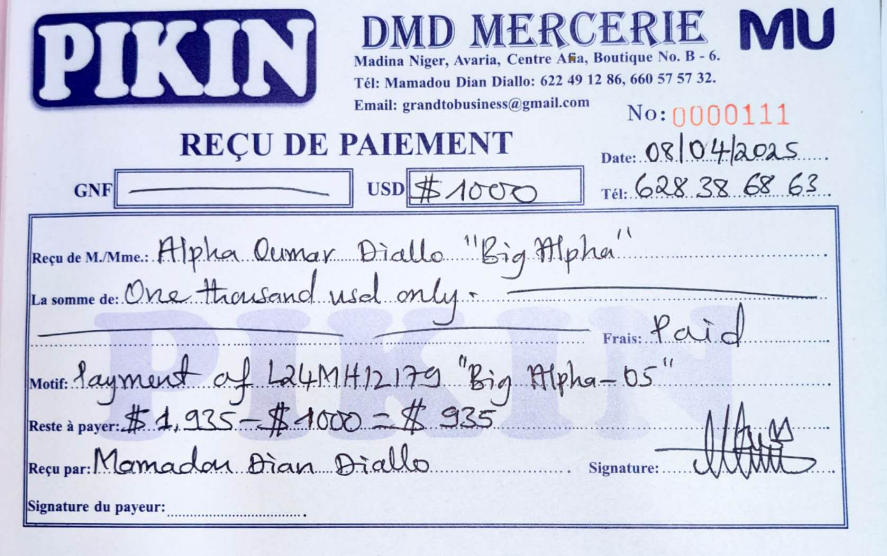 PIKIN
DMD MERCERIE MU
Madina Niger, Avaria, Centre Afia, Boutique No. B - 6.
Tél: Mamadou Dian Diallo: 622 49 12 86, 660 57 57 32.
Email: grandtobusiness@gmail.com
No: 0000111
REÇU DE PAIEMENT
Date: 08/04/2025
GNF USD $1000 Tél: 628 38 68 63
Reçu de M./Mme.: Alpha Oumar Diallo "Big Alpha"
La somme de: One thousand usd only.
Frais: Paid
Motif: Payment of L24MH12179 "Big Alpha-05"
Reste à payer: $1,935-$1000 = $935
Reçu par: Mamadou Dian Diallo Signature:
Signature du payeur:
PIKIN